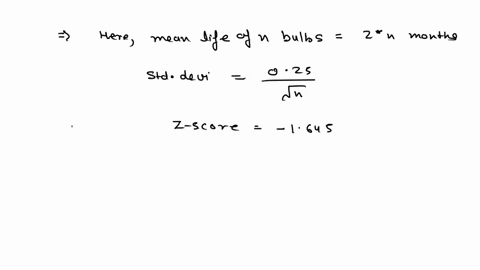 ⇒ Here, mean life of n bulbs = 2*n months
Std. devi = 0.25/√n
Z-score = -1.645